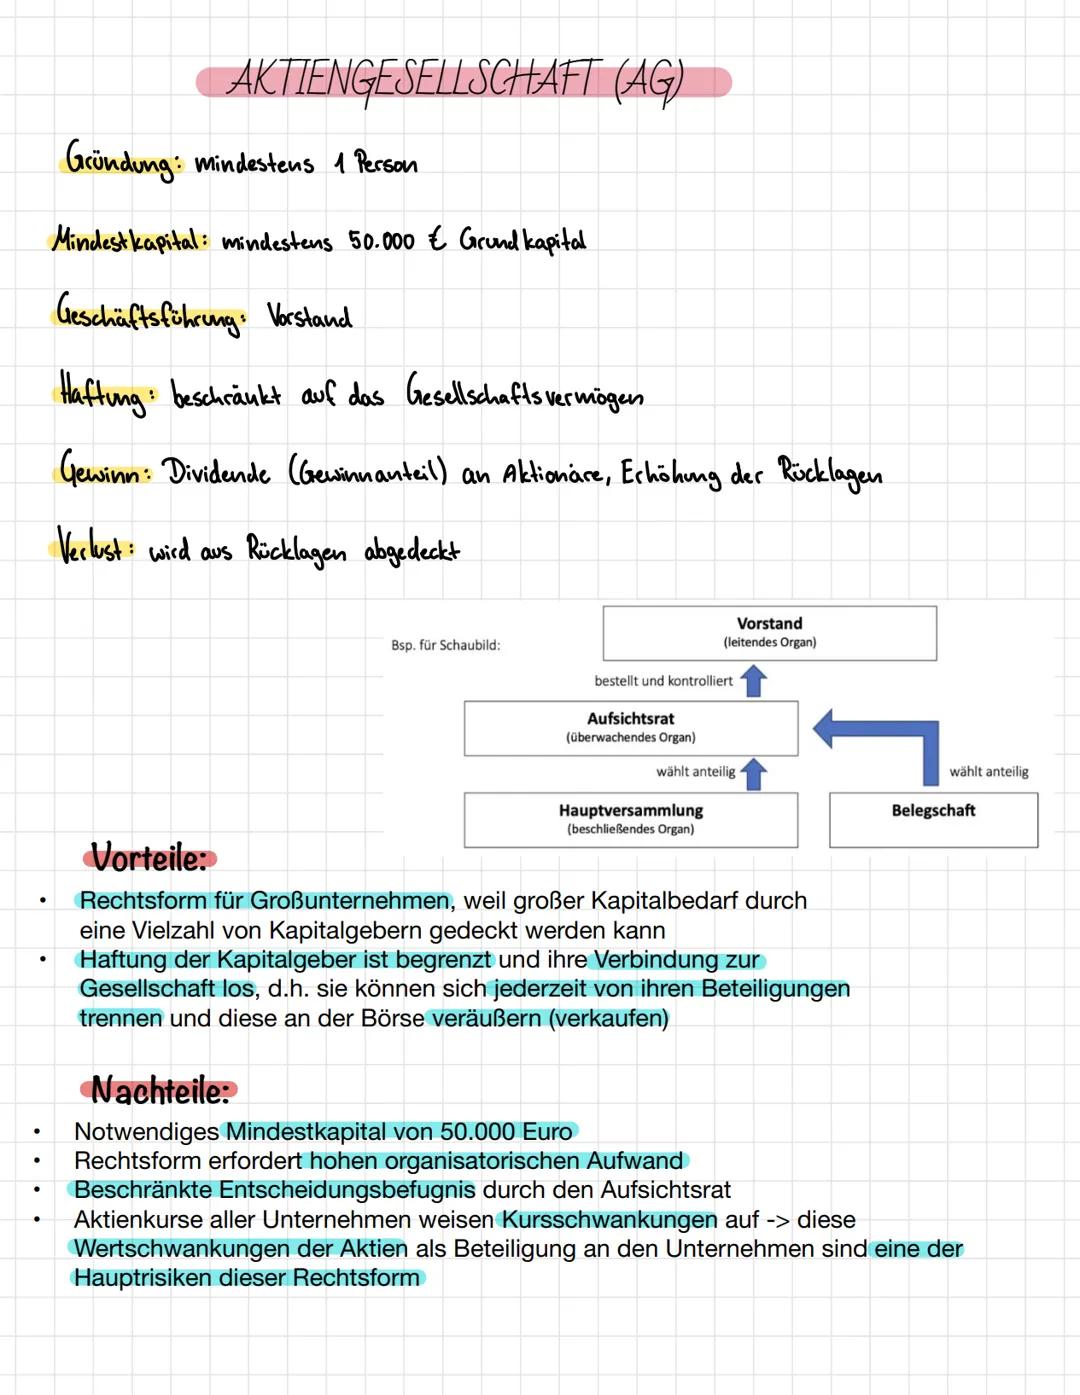 AKTIENGESELLSCHAFT (AG)
Gründung: mindestens 1 Person
Mindestkapital: mindestens 50.000 € Grundkapital
Geschäftsführung: Vorstand
Haftung: beschränkt auf das Gesellschaftsvermögen
Gewinn: Dividende (Gewinnanteil) an Aktionäre, Erhöhung der Rücklagen
Verlust: wird aus Rücklagen abgedeckt
Bsp. für Schaubild:
Vorstand
(leitendes Organ)
bestellt und kontrolliert
Aufsichtsrat
(überwachendes Organ)
wählt anteilig
wählt anteilig
Hauptversammlung
(beschließendes Organ)
Belegschaft
Vorteile:
• Rechtsform für Großunternehmen, weil großer Kapitalbedarf durch
eine Vielzahl von Kapitalgebern gedeckt werden kann
• Haftung der Kapitalgeber ist begrenzt und ihre Verbindung zur
Gesellschaft los, d.h. sie können sich jederzeit von ihren Beteiligungen
trennen und diese an der Börse veräußern (verkaufen)
Nachteile:
• Notwendiges Mindestkapital von 50.000 Euro
• Rechtsform erfordert hohen organisatorischen Aufwand
• Beschränkte Entscheidungsbefugnis durch den Aufsichtsrat
• Aktienkurse aller Unternehmen weisen Kursschwankungen auf -> diese
Wertschwankungen der Aktien als Beteiligung an den Unternehmen sind eine der
Hauptrisiken dieser Rechtsform